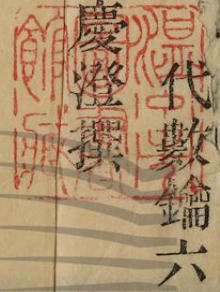 代數鑰六
慶澄撰